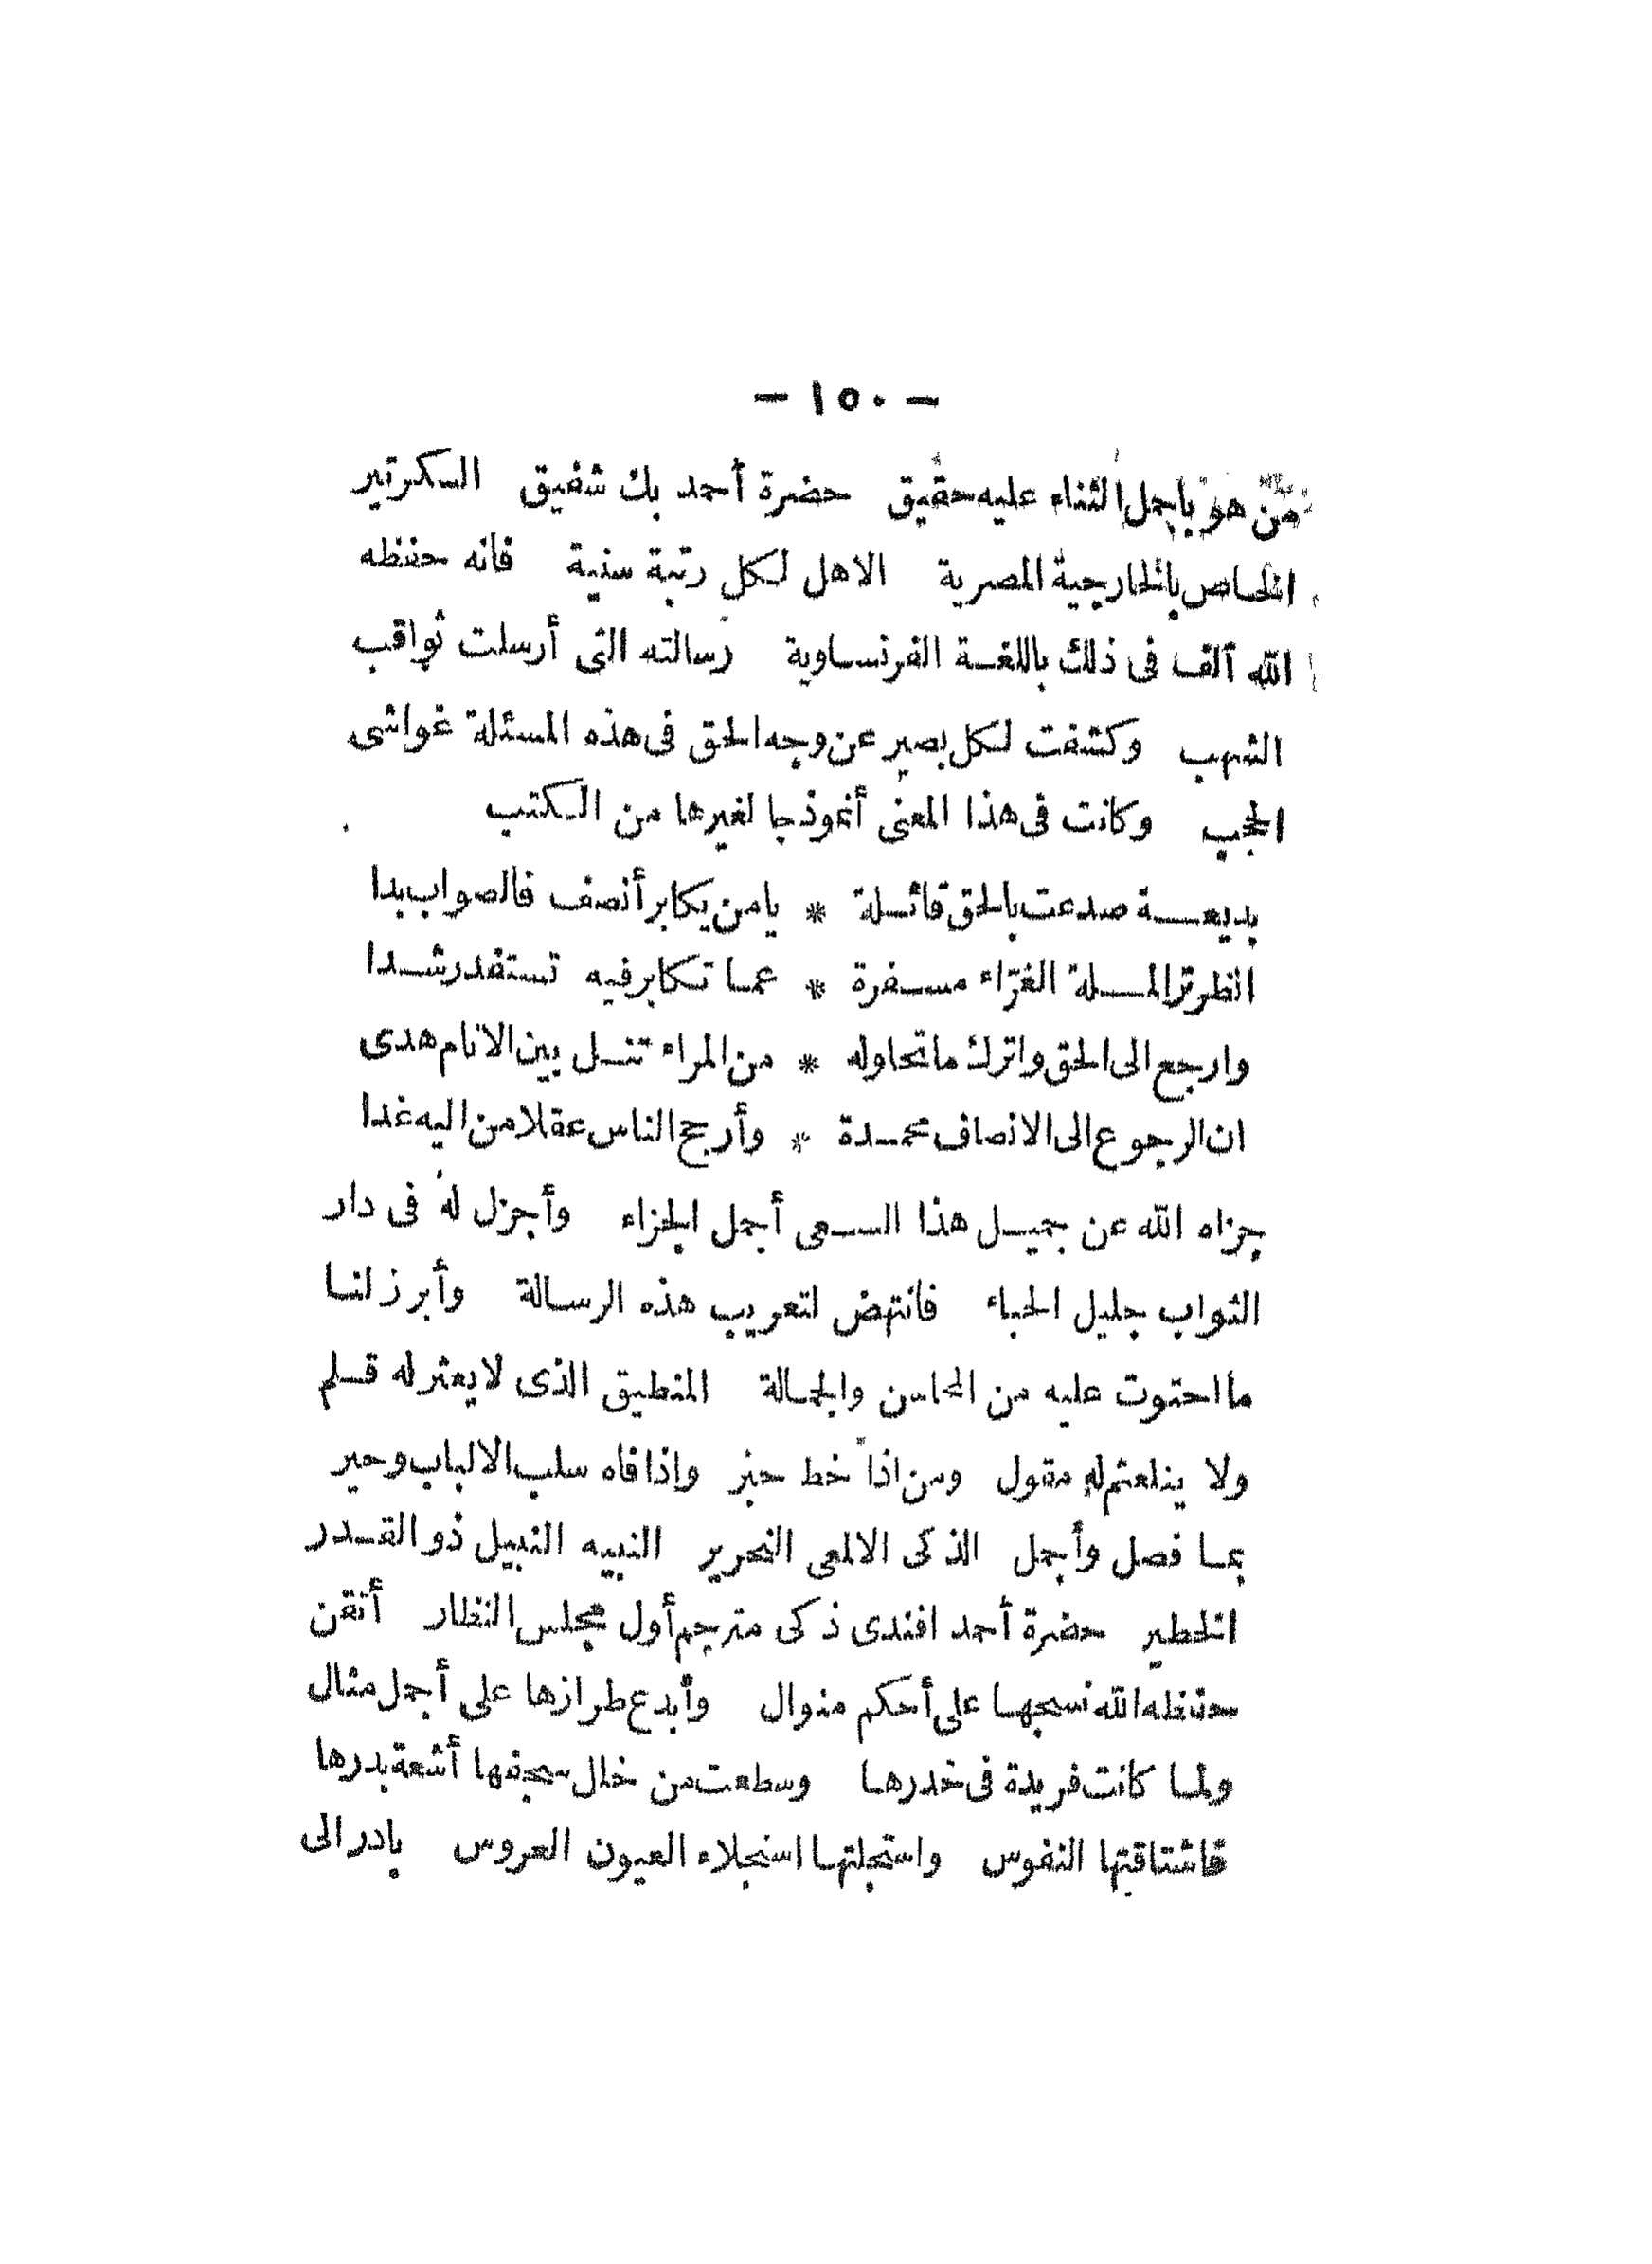 - ١٥٠ -
من هو باجمل الثناء عليه حقيق حضرة أحمد بك شفيق السكرتير
الخاص بالخارجية المصرية الاهل لكل رتبة سنية فانه حفظه
الله ألف فى ذلك باللغة الفرنساوية رسالته التى أرسلت ثواقب
الشهب وكشفت لكل بصير عن وجه الحق فى هذه المسئلة غواشى
الحجب وكانت فى هذا المعنى أنموذجا لغيرها من الكتب
بديعة صدعت بالحق قائلة * يا من يكابر أنصف فالصواب بدا
انظر تر الملة الغرّاء مسفرة * عما تكابر فيه تستفد رشدا
وارجع الى الحق واترك ما تحاوله * من المراء تنل بين الانام هدى
ان الرجوع الى الانصاف محمدة * وأرجح الناس عقلا من اليه غدا
جزاه الله عن جميل هذا السعى أجمل الجزاء وأجزل له فى دار
الثواب جليل الحباء فانتهض لتعريب هذه الرسالة وأبرز لنا
ما احتوت عليه من المحاسن والجمالة المنطيق الذى لا يعثر له قلم
ولا يتلعثم له مقول ومن اذا خط حبر واذا فاه سلب الالباب وحير
بما فصل وأجمل الذكى الالمعى النحرير النبيه النبيل ذو القدر
الخطير حضرة أحمد افندى ذكى مترجم أول مجلس النظار أتقن
حفظه الله نسجها على أحكم منوال وأبدع طرازها على أجمل مثال
ولما كانت فريدة فى خدرها وسطعت من خلال سجفها أشعة بدرها
فاشتاقتها النفوس واستجلتها استجلاء العيون العروس بادر الى